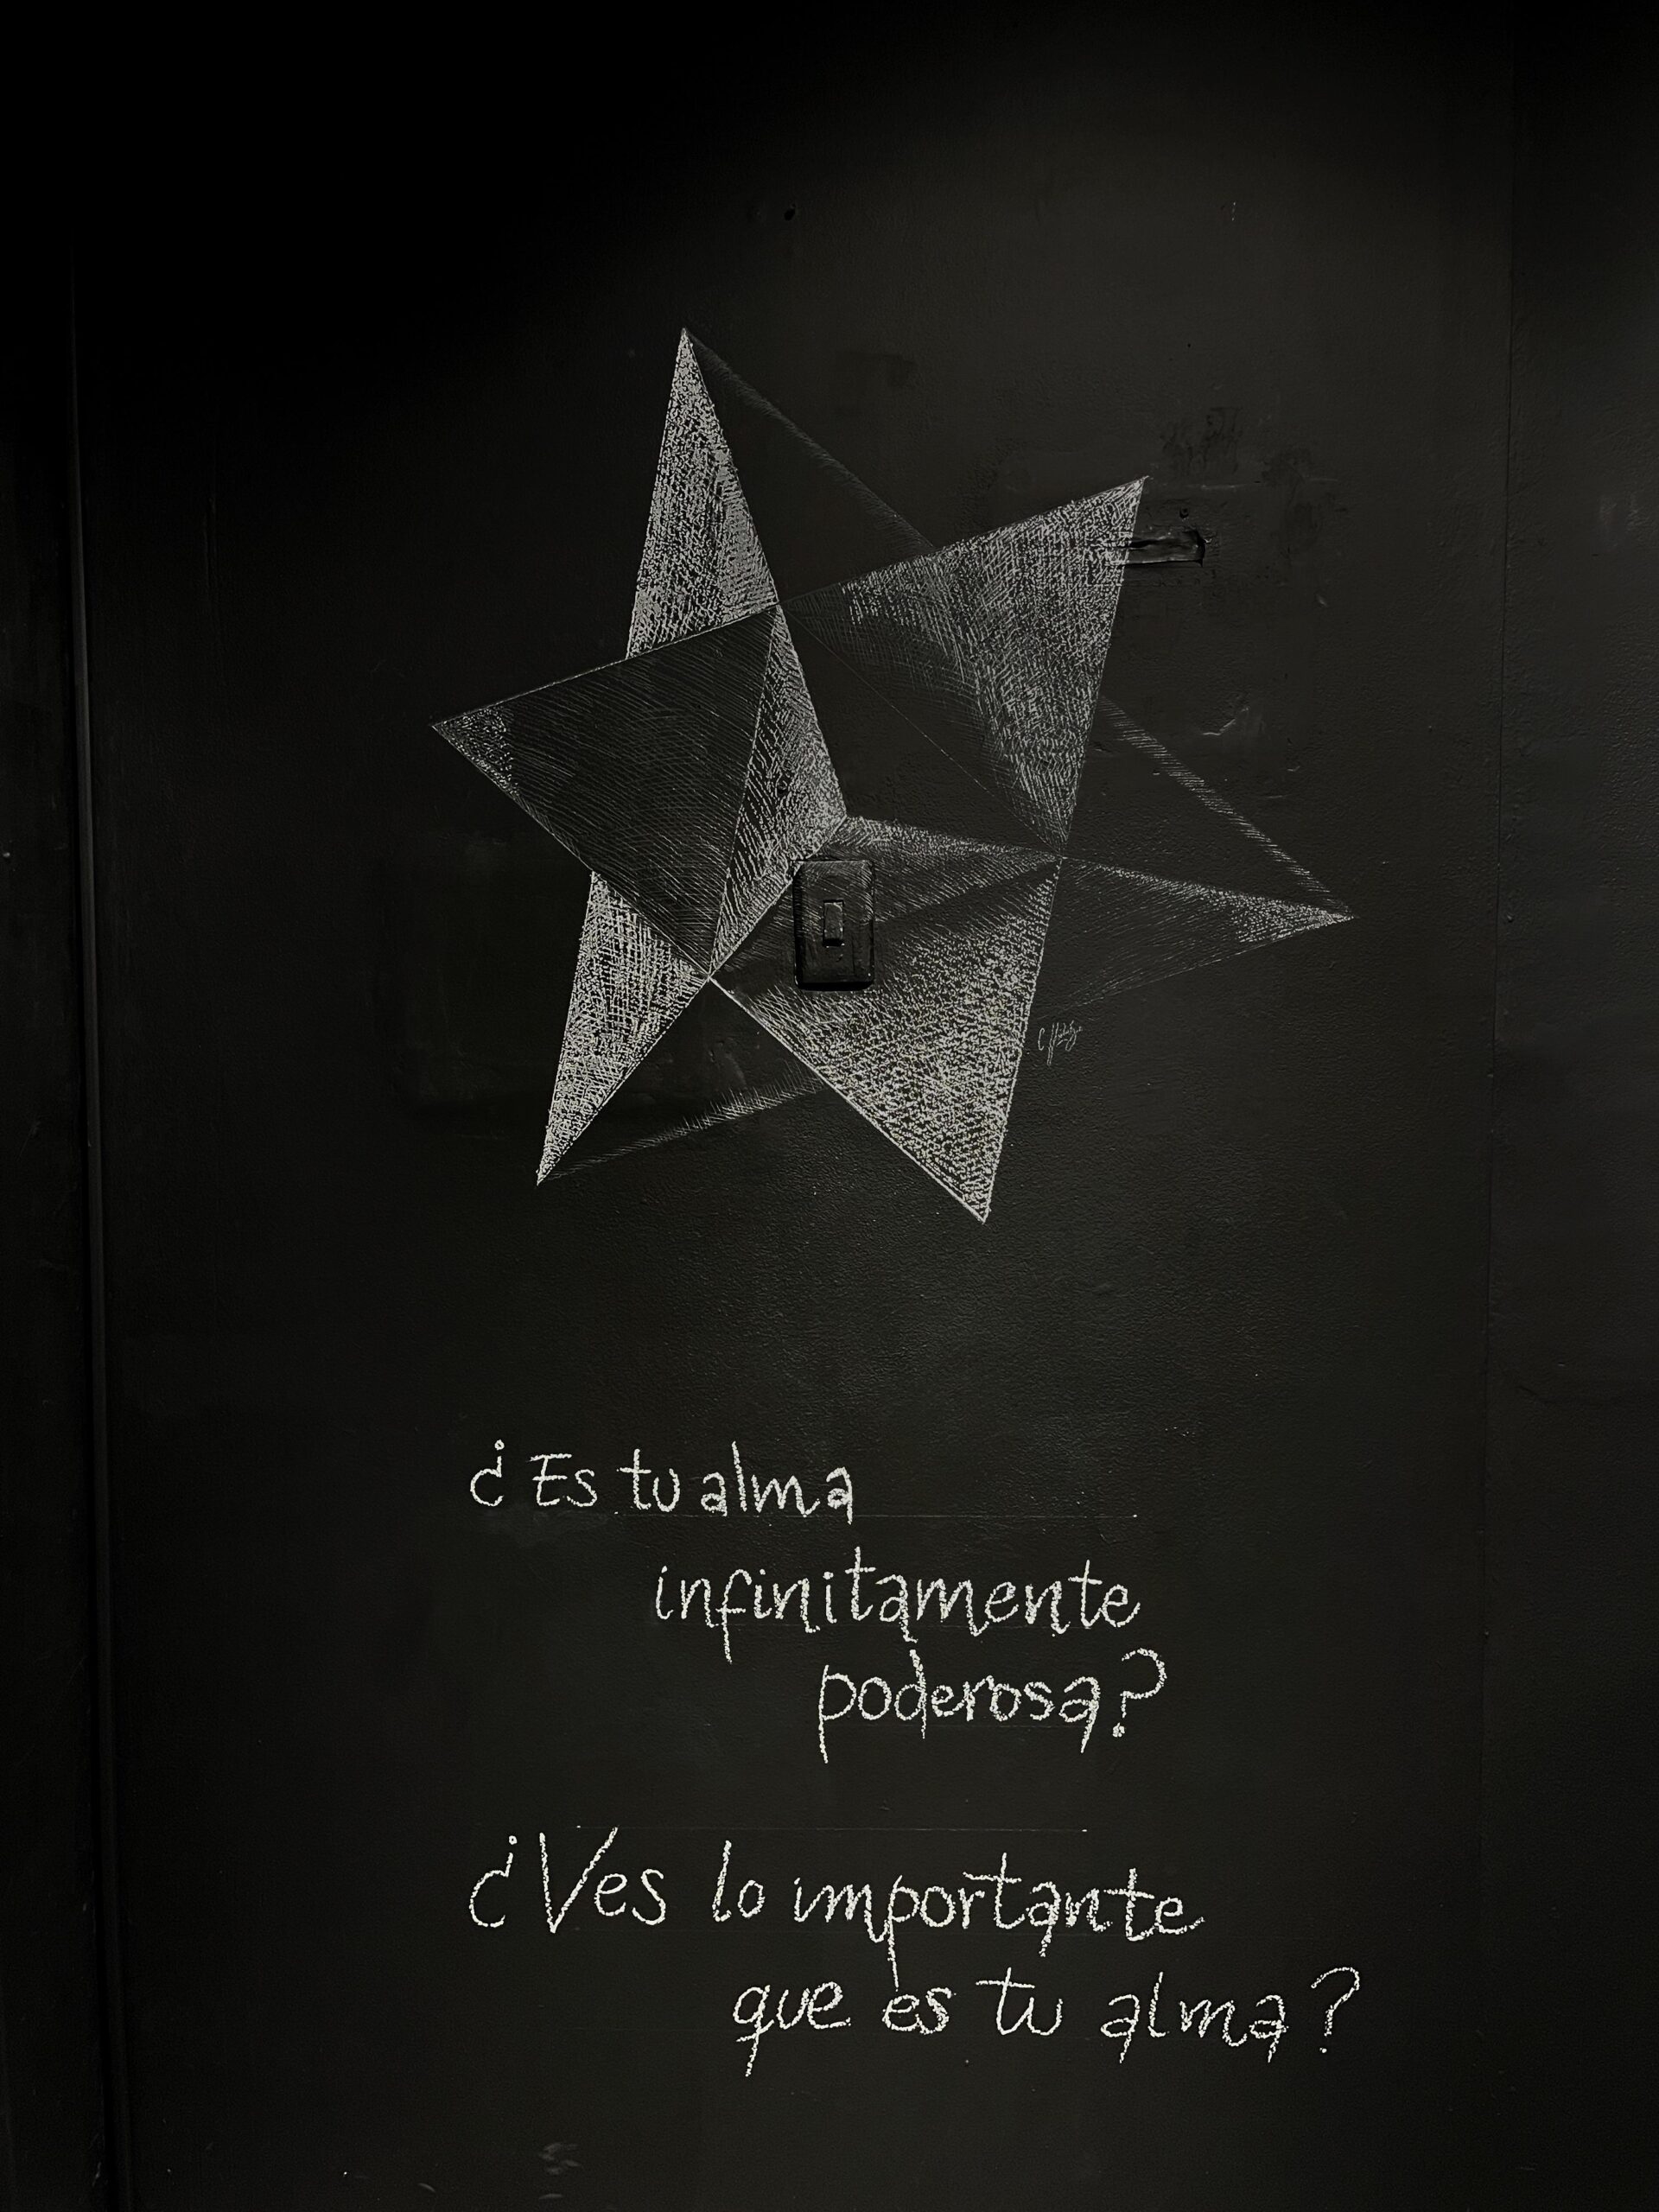 ¿Es tu alma
infinitamente
poderosa?
¿Ves lo importante
que es tu alma?